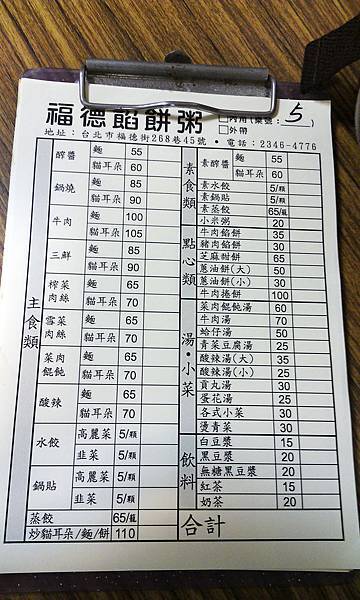 福德餡餅粥
□內用(桌號: 5 )
□外帶
地址：台北市福德街268巷45號・電話：2346-4776
主食類
醇醬 麵 55
貓耳朵 60
鍋燒 麵 85
貓耳朵 90
牛肉 麵 100
貓耳朵 105
三鮮 麵 85
貓耳朵 90
榨菜肉絲 麵 65
貓耳朵 70
雪菜肉絲 麵 65
貓耳朵 70
菜肉餛飩 麵 65
貓耳朵 70
酸辣 麵 65
貓耳朵 70
水餃 高麗菜 5/顆
韭菜 5/顆
鍋貼 高麗菜 5/顆
韭菜 5/顆
蒸餃 65/籠
炒貓耳朵/麵/餅 110
素食類
素醇醬 麵 55
貓耳朵 60
素水餃 5/顆
素鍋貼 5/顆
素蒸餃 65/籠
點心類
小米粥 20
牛肉餡餅 35
豬肉餡餅 30
芝麻甜餅 65
蔥油餅(大) 50
蔥油餅(小) 30
牛肉捲餅 100
湯・小菜
菜肉餛飩湯 60
牛肉湯 70
蛤仔湯 50
青菜豆腐湯 25
酸辣湯(大) 35
酸辣湯(小) 25
貢丸湯 30
蛋花湯 25
各式小菜 30
燙青菜 30
飲料
白豆漿 15
黑豆漿 20
無糖黑豆漿 20
紅茶 15
奶茶 20
合計